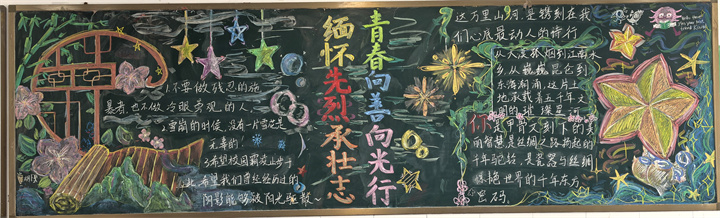 1.不要做残忍的施
暴者,也不做冷眼旁观的人
2.雪崩的时候,没有一片雪花是
无辜的!
3.希望校园霸凌止步于
此,希望我们曾经经历过的
阴影能够被阳光驱散~
缅怀先烈承壮志
青春向善向光行
这万里山河,是镌刻在我
们心底最动人的诗行
从大漠孤烟到江南水
乡,从巍巍昆仑到
东海,这片土
地承载着五千年文
明的璀璨
你是甲骨文刻下的
智慧,是丝绸之路扬起的
千年驼铃,是瓷器与丝绸
世界的千年东方
密码,